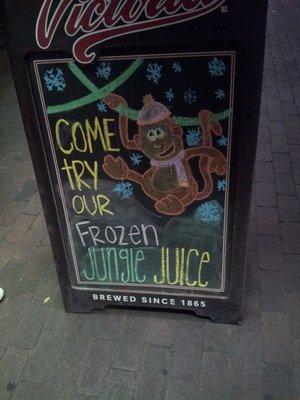 Victoria
COME
tRY
OUR
FROZEN
JUNGLE JUICE
BREWED SINCE 1865